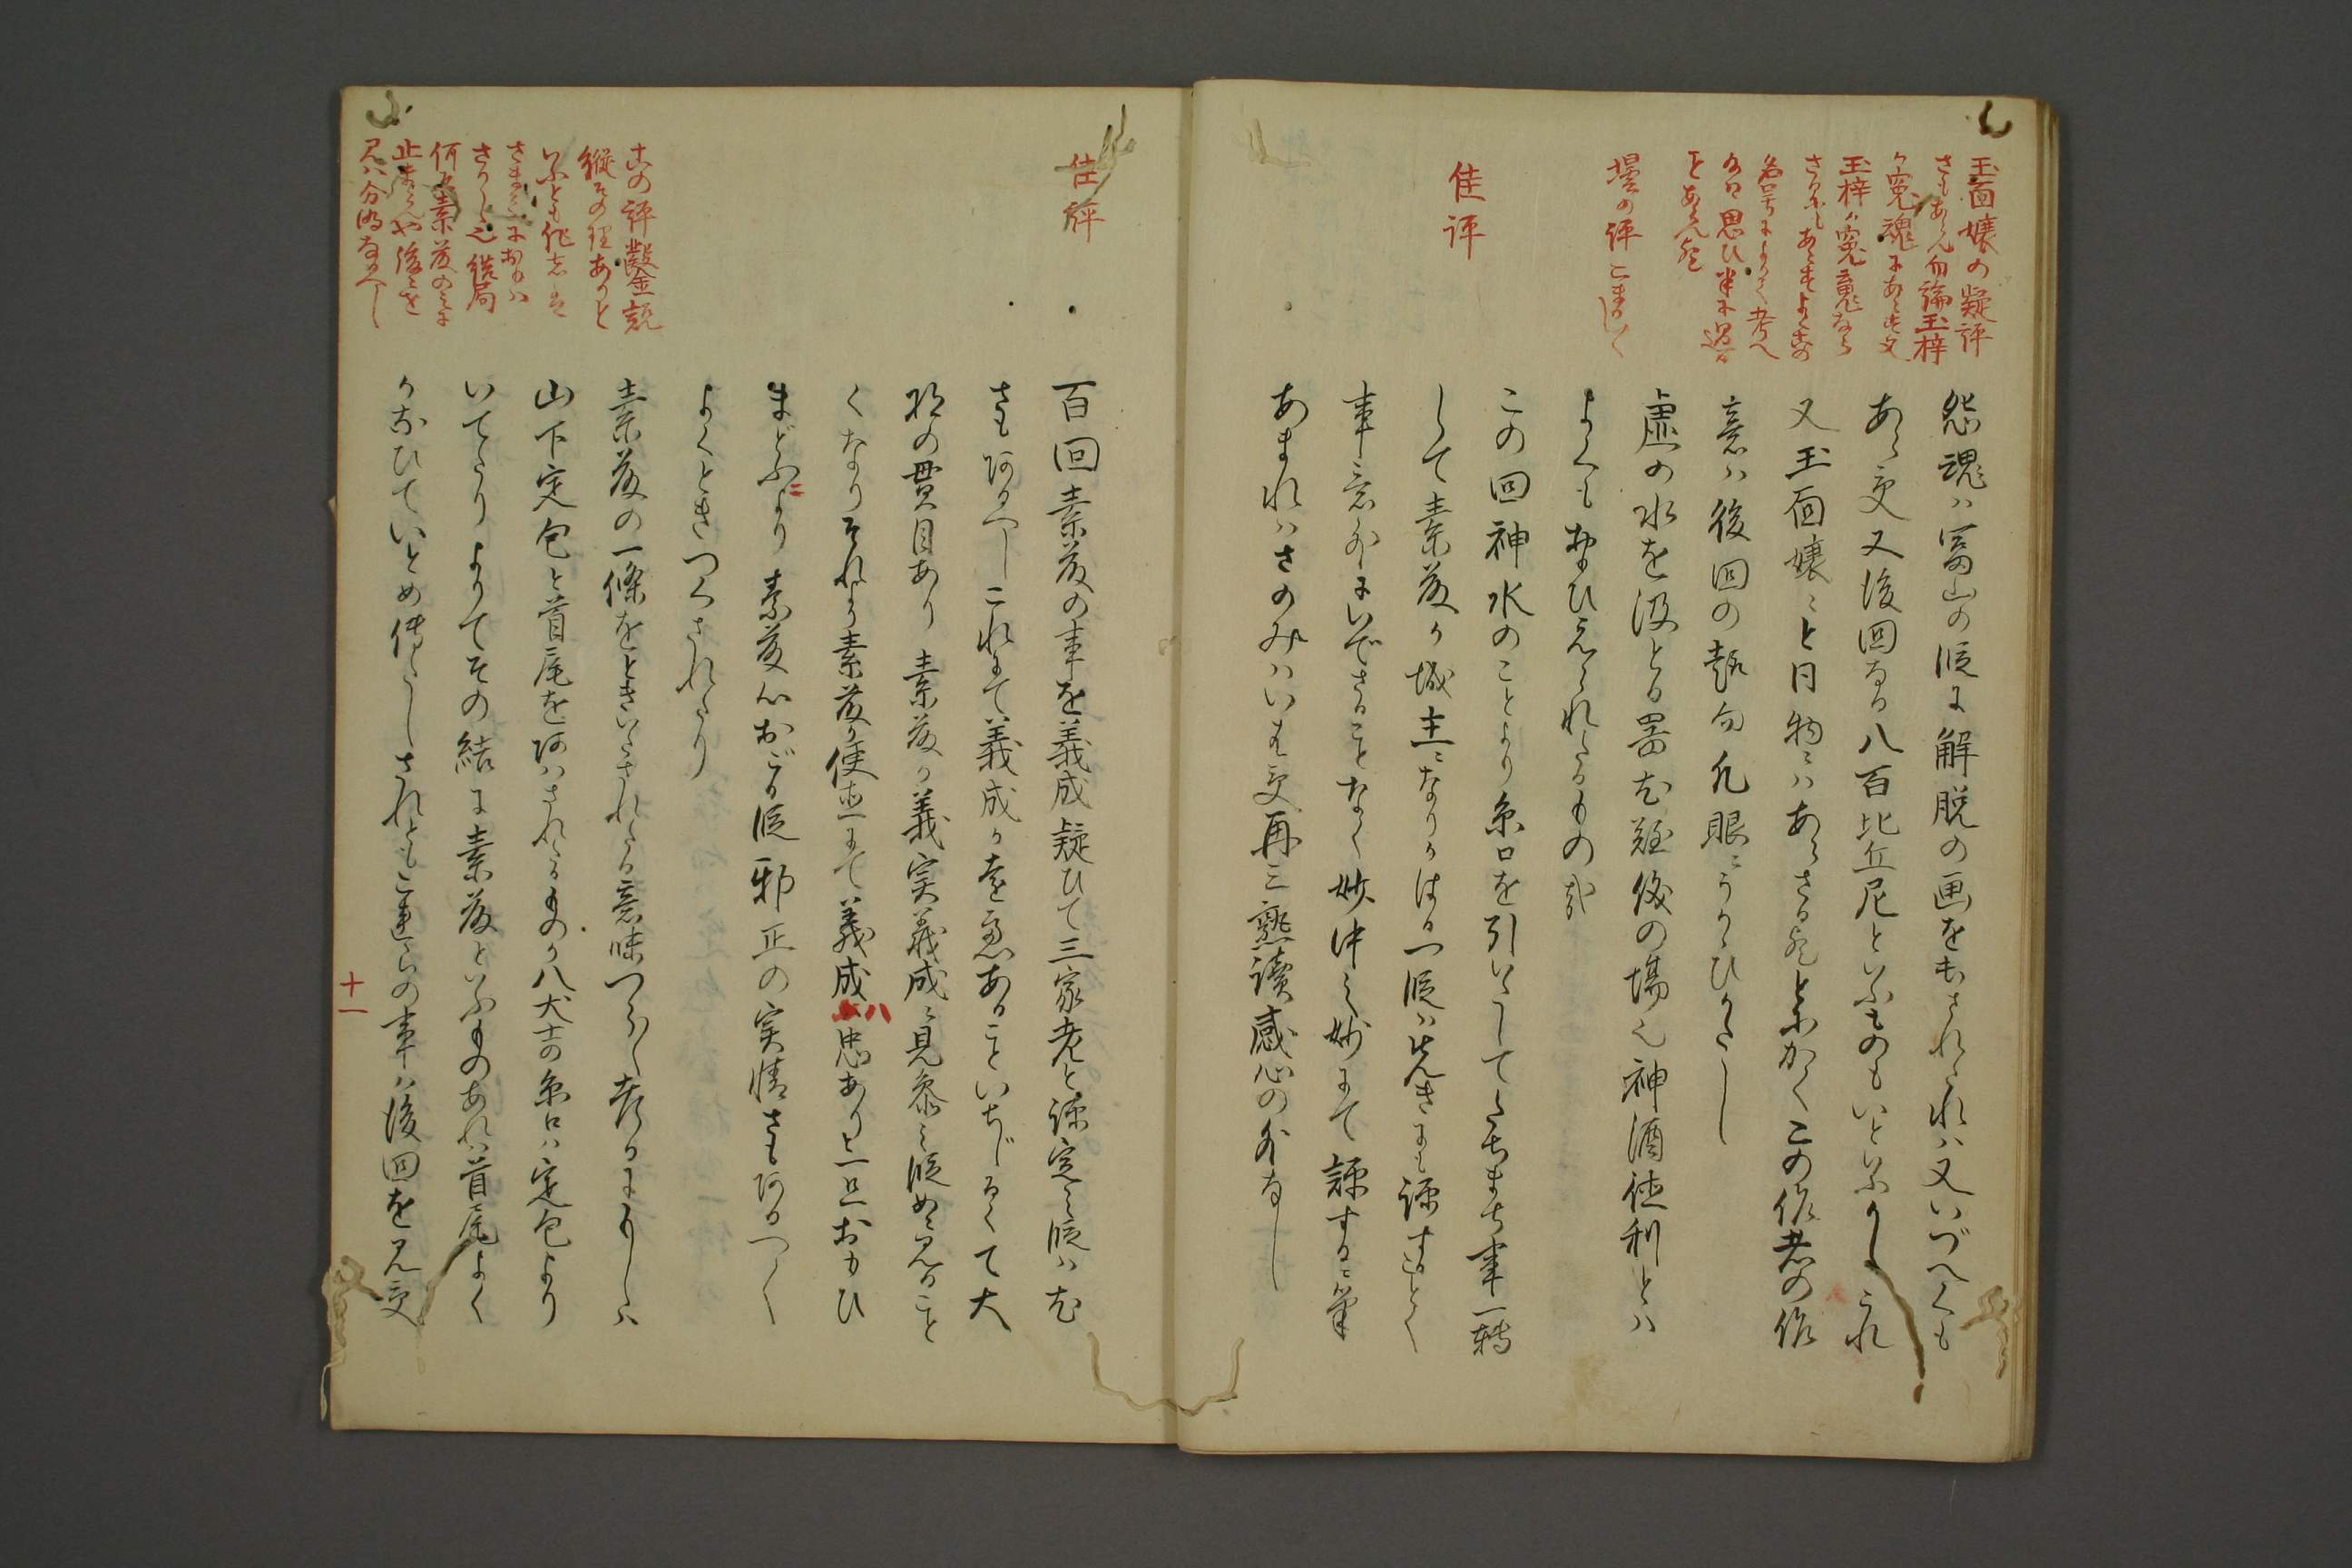 玉面嬢の疑評
さもあらん勿論玉梓
か冤魂にあらす又
玉梓か冤鬼なら
さるにもあらすよくこの
名号によりて考へ
なは思ひ半に過る
ことあらん歟
壜の評こまかし
佳評
怨魂ハ富山の段に解脱の画を出されたれハ又いづへくも
あらす又後回なる八百比丘尼といふものもいといふかしこれ
又玉面嬢ミと同物ミハあらさる歟とにかくこの作者の作
意ハ後回の趣向凡眼にうかゝひかたし
虚の水を汲とる器
後の場也神酒徳利とハ
よくもおもひえられたるもの哉
この回神水のことより糸口を引いたしてたちまち事一転
して素藤か城主になりかはる一段ハ先きにも評することく
事意外にいでさることなく妙中之妙にて評するに筆
あまれハさのみハいはす再三熟読感心の外なし
佳評
この評鑿説
縦その理ありと
いふとも作者は
さまてにおもハ
さりし也結局
何そ素藤のミに
止まらんや後々を
見ハ分明なるへし
百回素藤の事を義成疑ひて三家老と評定之段ハ
さもあるへしこれにて義成か
あることいちじるくて大
将の貫目あり素藤か義実義成に見参之段め見ること
くなりそれより素藤か便宜にて義成ハ忠ありと一旦おもひ
まどふより素藤心おごる段邪正の実情さもあるへく
よくときつくされたり
素藤の一條をときいたされたる意味つらつら考るにもしハ
山下定包と首尾を合ハされたるものか八犬士の糸口ハ定包より
いてたりよりてその結に素藤といふものあれハ首尾よく
かなひていとめてたしされともこれらの事ハ後回を見す
十一